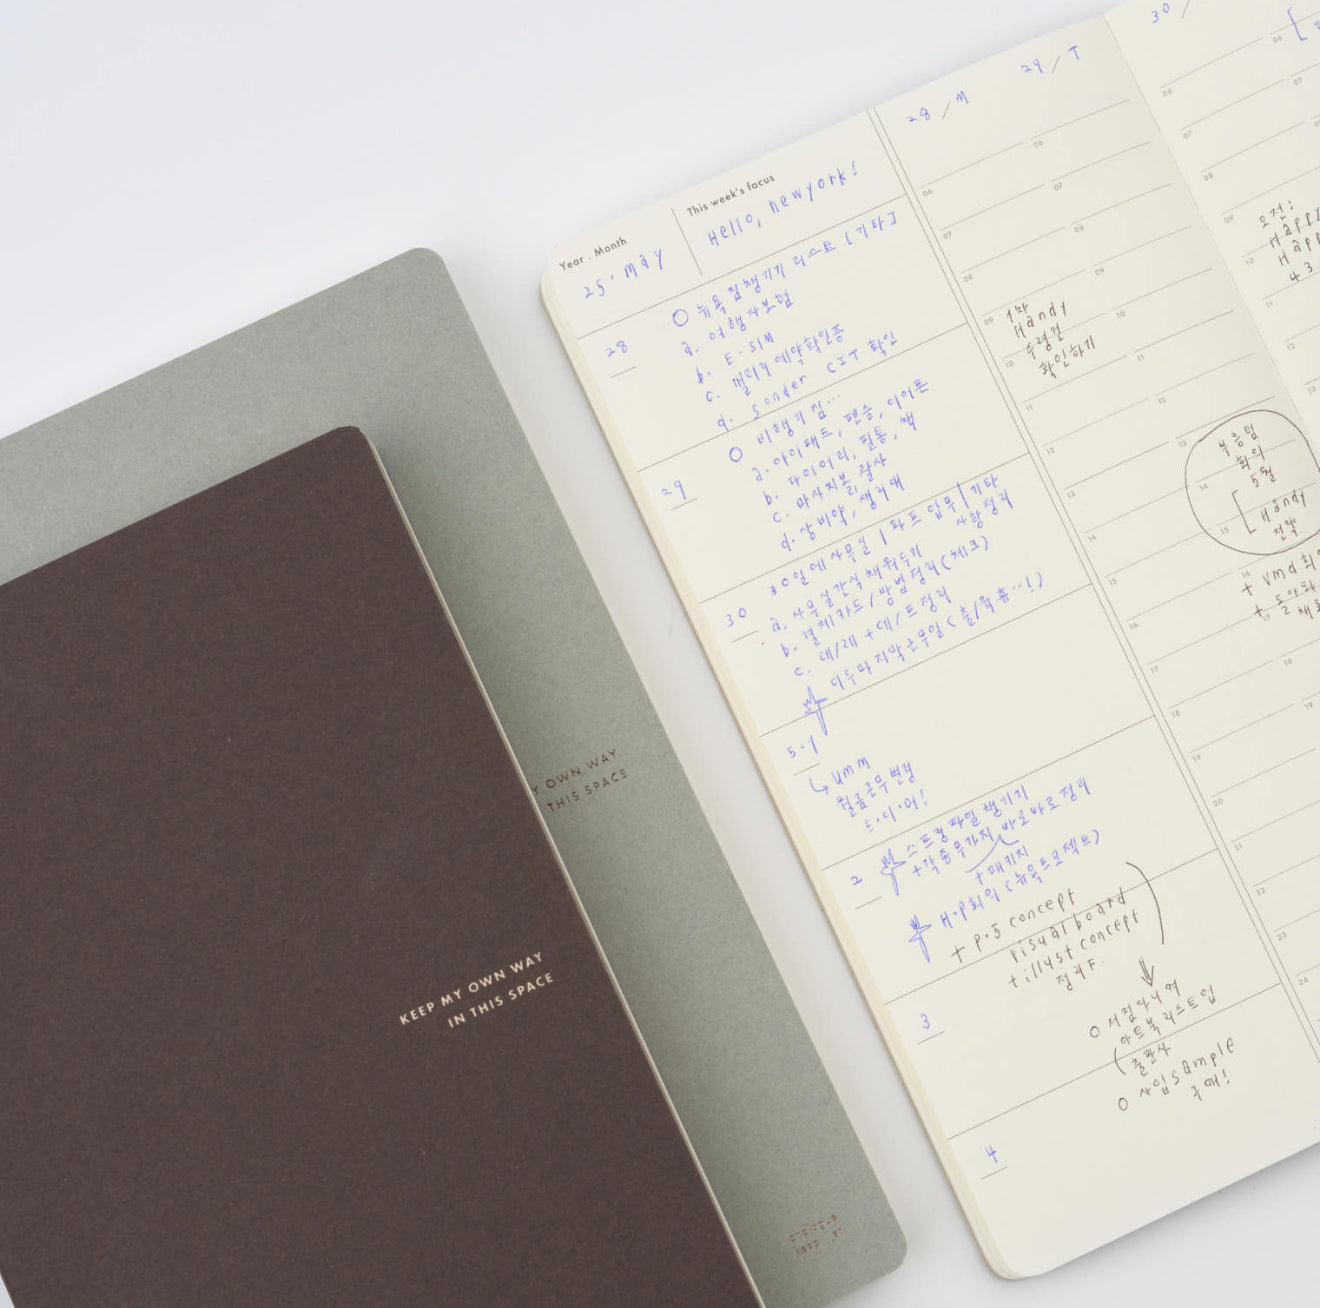 KEEP MY OWN WAY
IN THIS SPACE
Y OWN WAY
THIS SPACE
Year . Month
25. May
This week's focus
Hello, newyork!
28
○ 뉴욕 짐챙기기 리스트 [기타]
a. 여행자보험
b. E-SIM
c. 갤러리예약확인증
d. Sonder 확인
29
○ 비행기 짐...
a. 아이패드, 펜슬, 이어폰
b. 다이어리, 필통, 책
c. 마사지볼, 괄사
d. 상비약, 생리대
30
30일에 사무실 | 파트 업무 | 기타
사항정리
a. 사무실간식 채워두기
b. 결제카드/방법정리(체크)
c. 데/레 + 데/프정리
마지막근무일
5.1
umm
월급근무변경
드.디.어!
2
스트링파일챙기기
+각종무가지 바로바로정리
+패키지
H.P회의(뉴욕프로젝트)
+ P.5 concept
visual board
+ illust concept
정리F.
3
○ 서점다니며
아트북리스트업
출판사
○ 사입sample
구매!
4
28 / M
29 / T
06
06
07
07
08
08
09
09
10
10
11
11
12
12
13
13
14
14
15
15
16
16
17
17
18
18
19
19
20
21
22
23
24
1차
Handy
수령건
확인하기
부흥팀
회의
5월
Handy
전략
+ vmd회
30 /
06
06
07
07
08
09
10
11
12
13
오전:
Happy
Happ
43